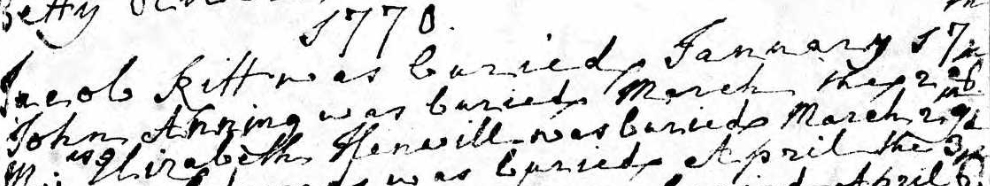 Betty
1770.
Jacob Kitt was buried January 17th
John Anning was buried March the 2d
Mrs Elizabeth Henvill was buried March 29th
was buried April the 3d
buried April